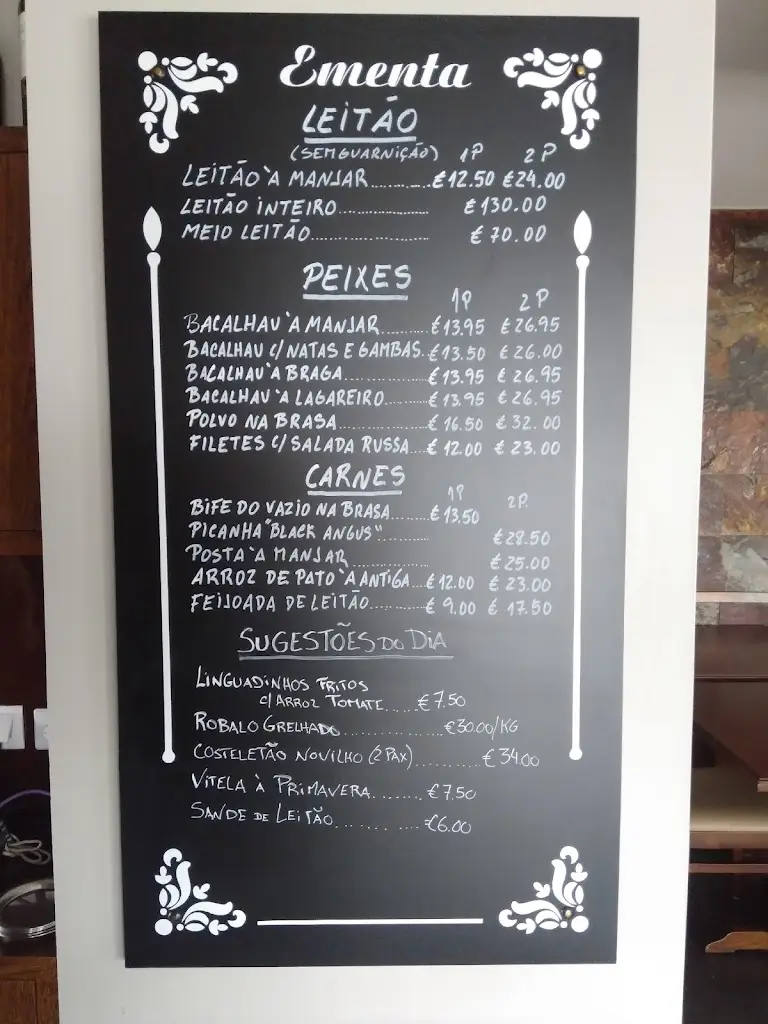 Ementa
LEITÃO
(SEM GUARNIÇÃO) 1P 2P
LEITÃO À MANJAR........... €12.50 €24.00
LEITÃO INTEIRO............... €130.00
MEIO LEITÃO................... €70.00
PEIXES
1P 2P
BACALHAU À MANJAR.......... €13.95 €26.95
BACALHAU C/NATAS E GAMBAS. €13.50 €26.00
BACALHAU À BRAGA............. €13.95 €26.95
BACALHAU À LAGAREIRO....... €13.95 €26.95
POLVO NA BRASA................ €16.50 €32.00
FILETES C/ SALADA RUSSA.... €12.00 €23.00
CARNES
1P 2P.
BIFE DO VAZIO NA BRASA...... €13.50
PICANHA "BLACK ANGUS"......... €28.50
POSTA À MANJAR.............. €25.00
ARROZ DE PATO À ANTIGA... €12.00 €23.00
FEIJOADA DE LEITÃO.......... €9.00 €17.50
SUGESTÕES DO DIA
LINGUADINHOS FRITOS
C/ ARROZ TOMATE...... €7.50
ROBALO GRELHADO.................. €30.00/KG
COSTELETÃO NOVILHO (2 PAX).......... €34.00
VITELA À PRIMAVERA........ €7.50
SANDE DE LEITÃO.............. €6.00